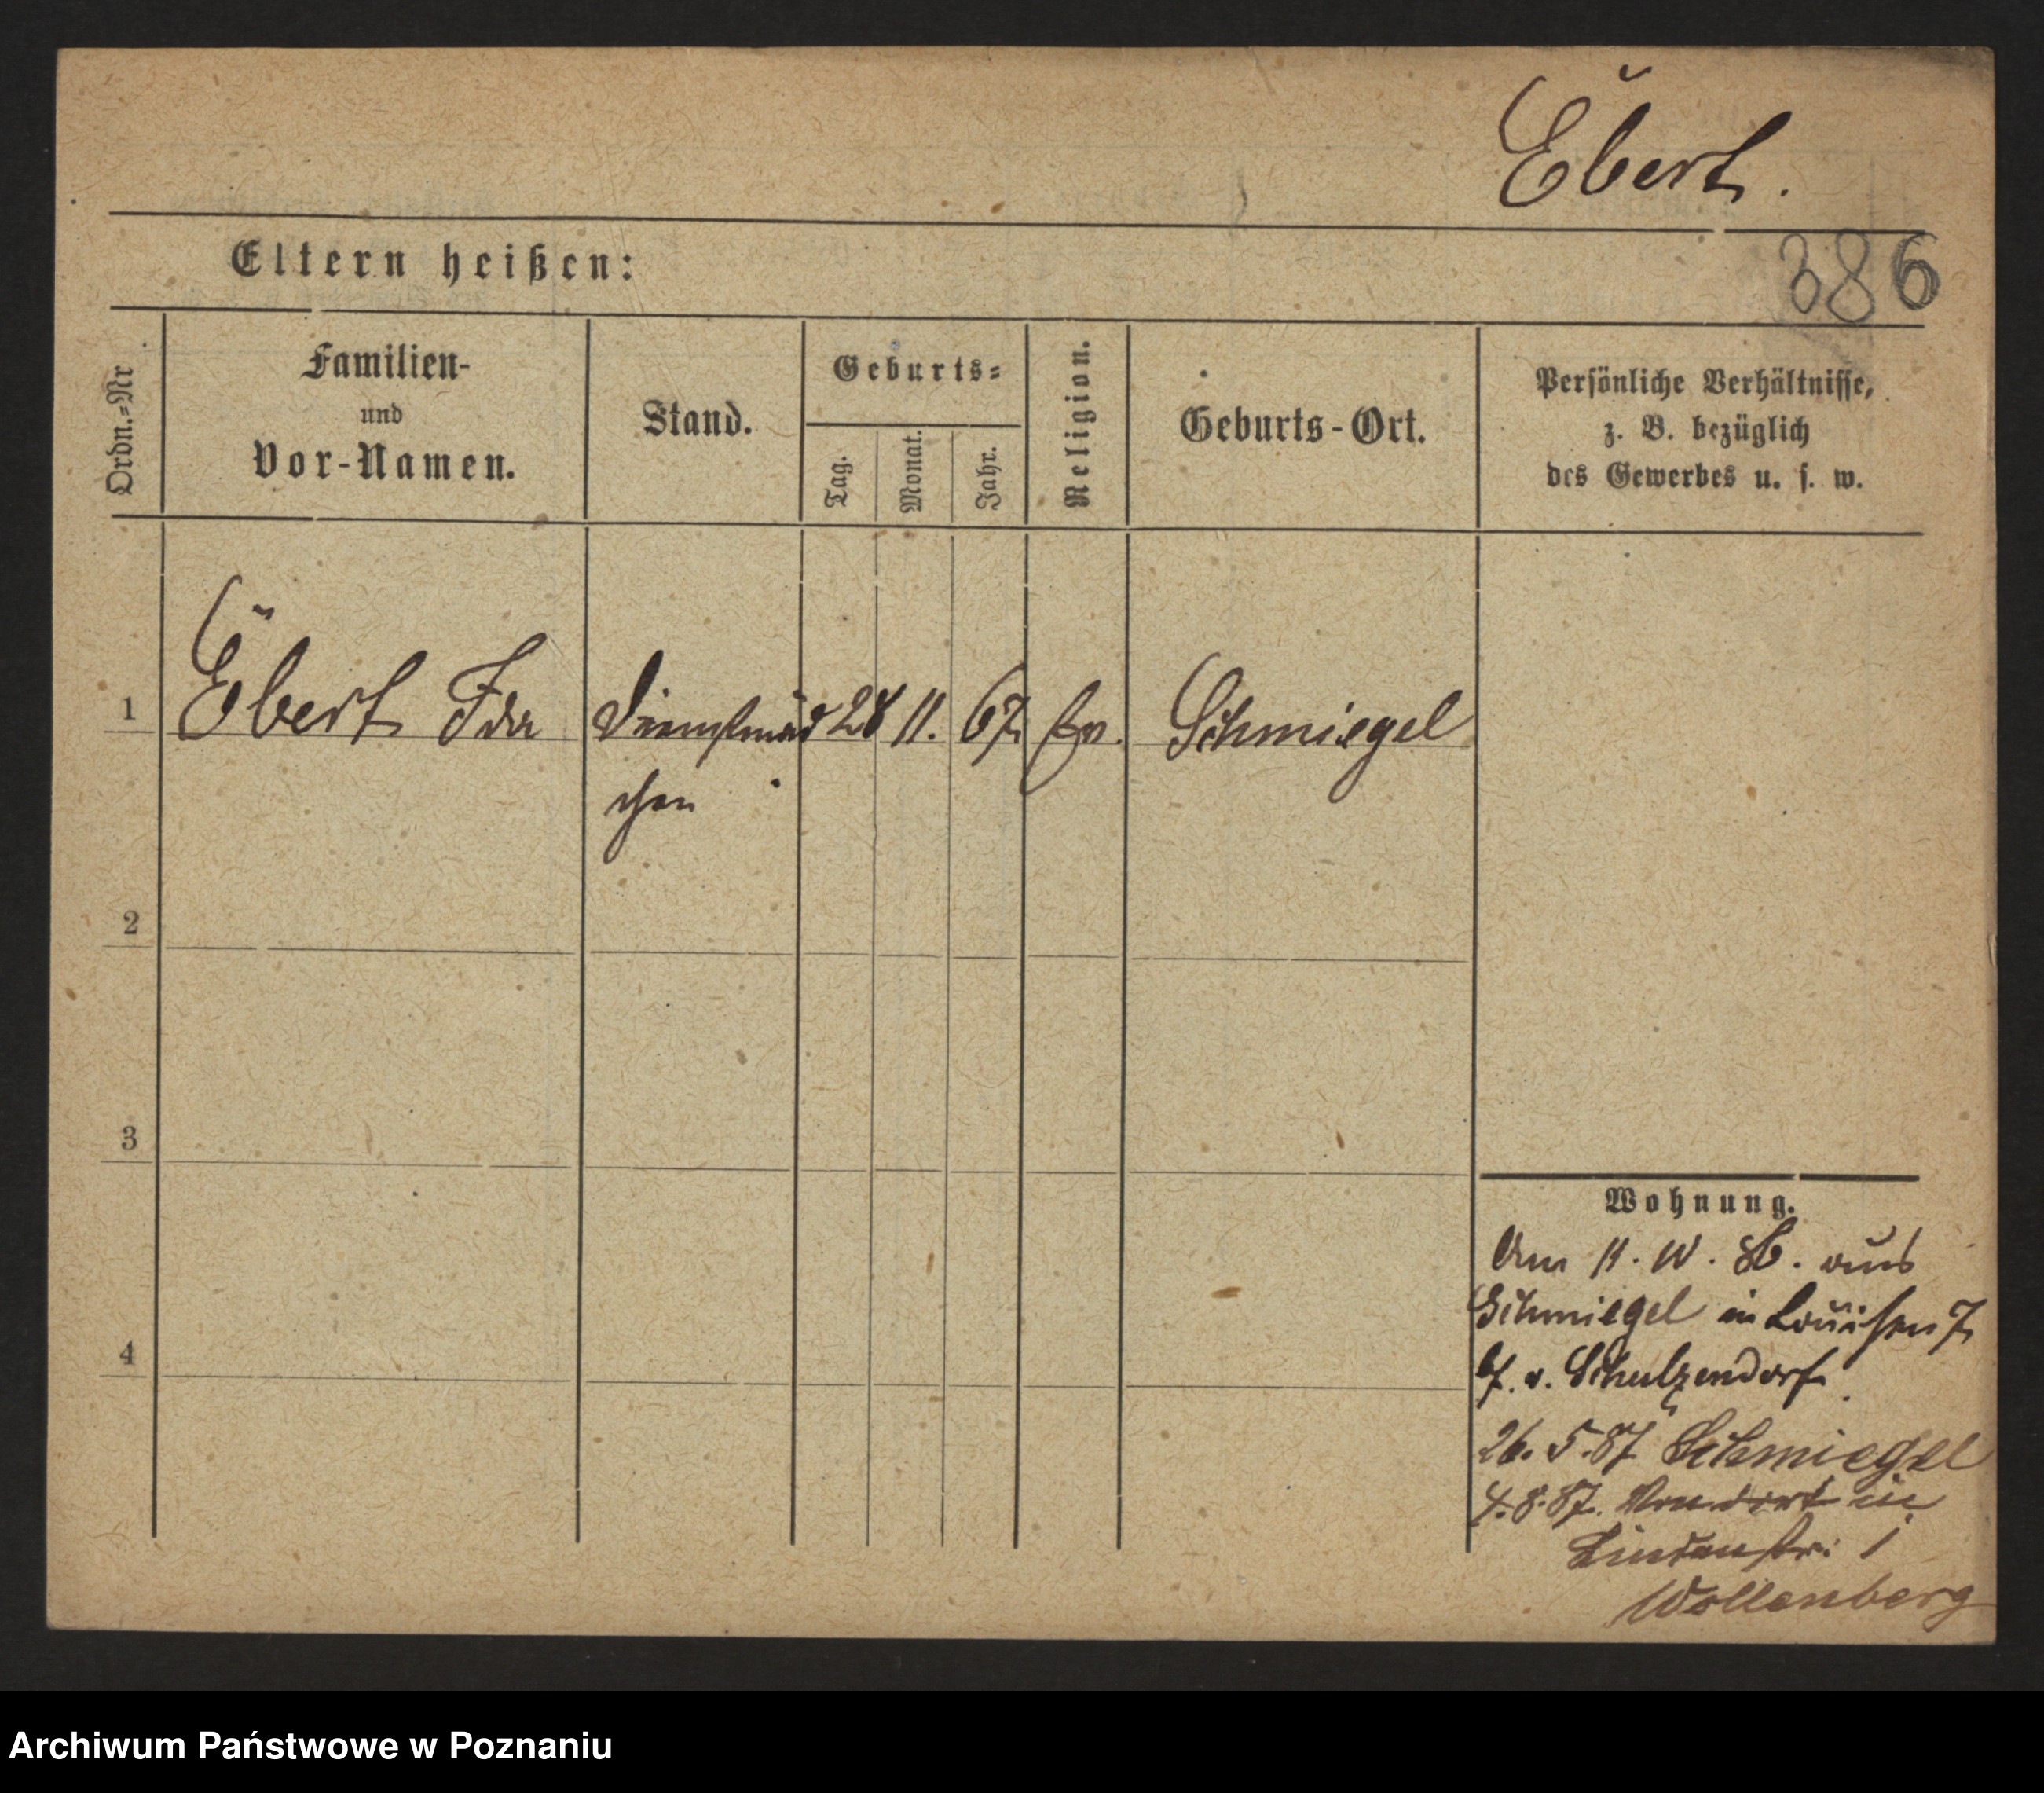 Ebert.
386
Eltern heißen:
Ordn.-Nr
Familien-
und
Vor-Namen.
Stand.
Geburts-
Tag.
Monat.
Jahr.
Religion.
Geburts-Ort.
Persönliche Verhältnisse,
z. B. bezüglich
des Gewerbes u. s. w.
1
Ebert Ida
Dienstmäd
chen
28
11.
67
Ev.
Schmiegel
2
3
4
Wohnung.
Am 11. 10. 86. aus
Schmiegel in Louisen 7
b/. v. Schulzendorf
26. 5. 87 Schmiegel
4. 8. 87. Von dort in
Lindenstr. 1
Wollenberg
Archiwum Państwowe w Poznaniu